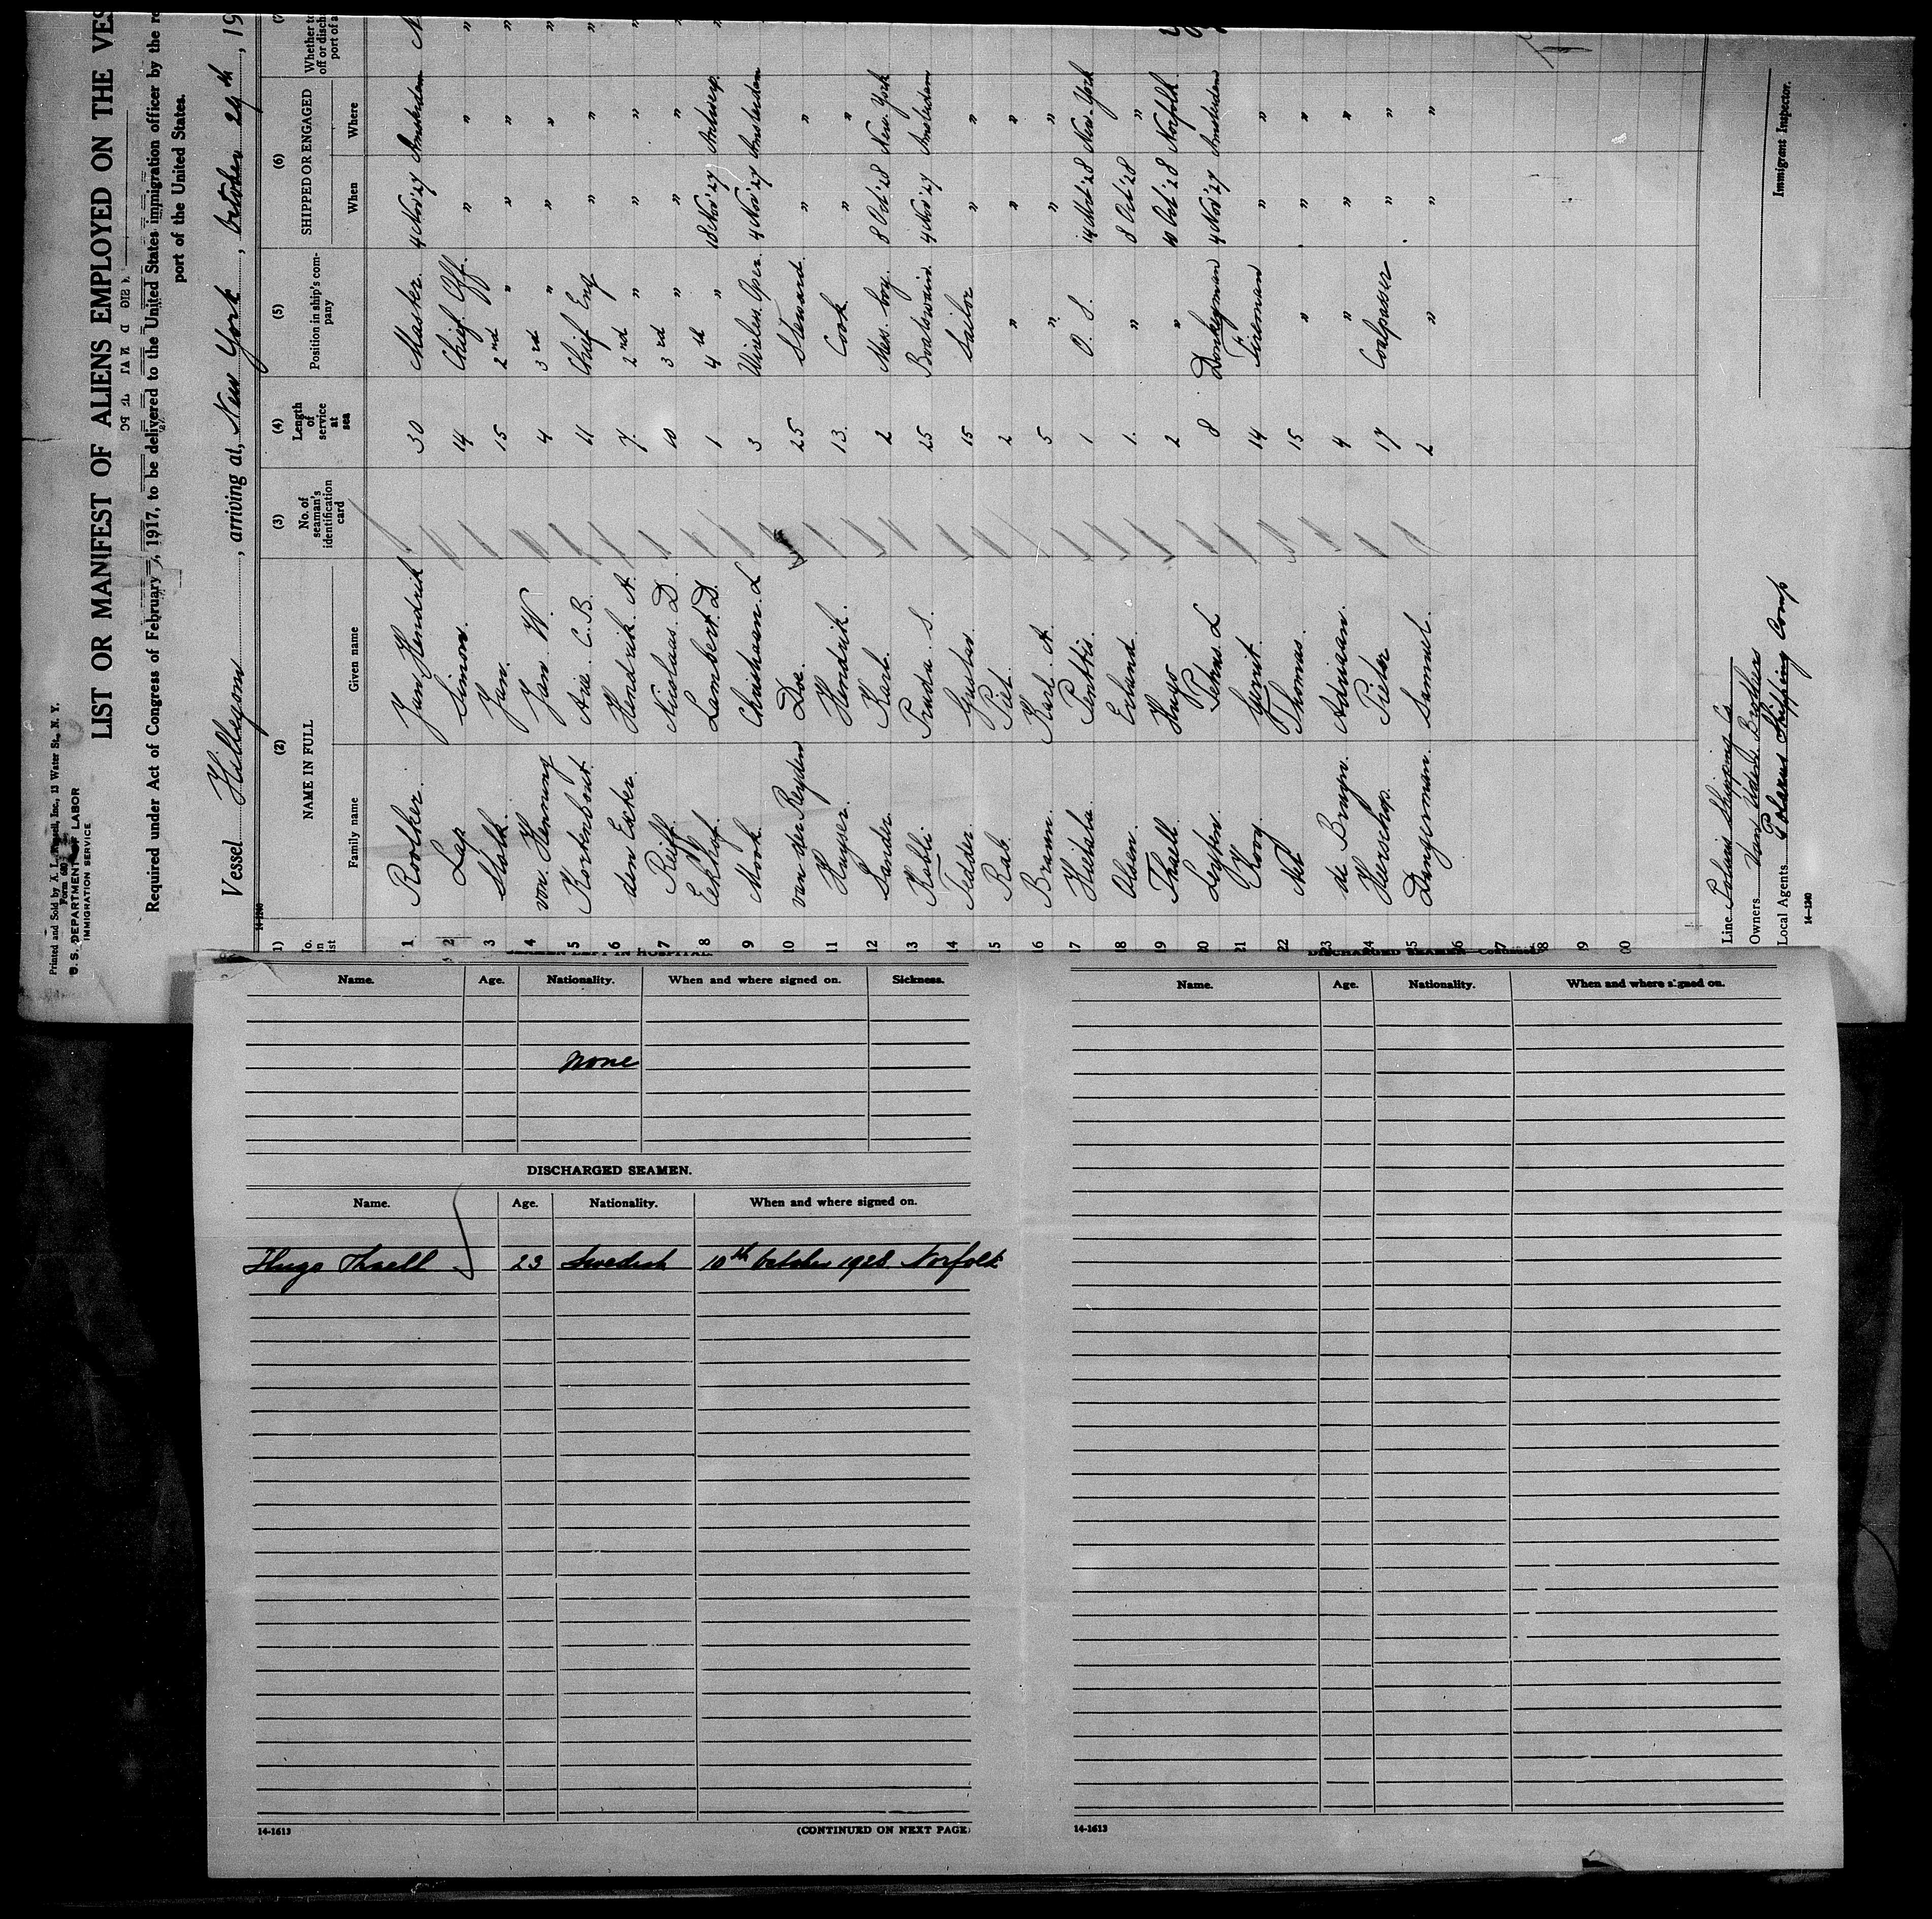 Printed and Sold by A. L. Russell, Inc., 13 Water St., N. Y.
Form 680
U. S. DEPARTMENT OF LABOR
IMMIGRATION SERVICE
LIST OR MANIFEST OF ALIENS EMPLOYED ON THE VES
Required under Act of Congress of February 5, 1917, to be delivered to the United States immigration officer by the re
port of the United States.
Vessel Hillegom, arriving at, New York, October 29th, 19
14-1240
(1) (2) (3) (4) (5) (6) (7
No. on list NAME IN FULL No. of seaman's identification card Length of service at sea Position in ship's company SHIPPED OR ENGAGED Whether to off or disch port of a
Family name Given name When Where
1 Rootker Jan Hendrik 30 Master 4 Nov '27 Amsterdam N
2 Lap Simon. 14 Chief Off. " " "
3 Stolk Jan. 15 2nd " " " "
4 von Henning Jan W. 4 3rd " " " "
5 Kortenbout Arie C.B. 11 Chief Eng " " "
6 den Exter. Hendrik A. 7. 2nd " " " "
7 Reiff. Nicolaas. D. 10 3rd " " " "
8 Eekhof. Lambert. D. 1 4th " 18 Nov '27 Antwerp. "
9 Mook. Christiaan. L 3 Wireless Oper. 4 Nov '27 Amsterdam
10 van der Reyden Doe. 25 Steward. " "
11 Huyser. Hendrik. 13. Cook. " "
12 Sander. Karl. 2 Mess. boy. 8 Oct '28 New. York
13 Kobli Prada S. 25 Boatswain. 4 Nov '27 Amsterdam
14 Tedder. Gustav. 15 Sailor " "
15 Rab. Piet. 2 " " "
16 Bramm. Karl. A. 5 " " "
17 Hietala. Penttis. 1 O. S. 14 Oct '28 New. York
18 Olsen. Erland. 1. " 8 Oct '28 "
19 Thaell. Hugo 2 " 10 Oct '28 Norfolk.
20 Leyten. Petrus. L 8 Donkeyman 4 Nov '27 Amsterdam
21 Kooy. Gerrit. 14 Fireman " "
22 Thomas. 15 " " "
23 de Bruyn. Adriaan. 4 " " "
24 Heerschop. Pieter 17 Coalpasser " "
25 Dungerman. Samuel. 2 " " "
26
27
28
29
30
Line Polaris Shipping Co
Owners Van Uden Brothers
Local Agents Polarus Shipping Comp
Immigrant Inspector.
14-1240
SEAMEN LEFT IN HOSPITAL.
Name. Age. Nationality. When and where signed on. Sickness.
none
DISCHARGED SEAMEN.
Name. Age. Nationality. When and where signed on.
Hugo Thaell 23 Swedish 10th October 1928 Norfolk
14-1613
(CONTINUED ON NEXT PAGE)
DISCHARGED SEAMEN—Continued.
Name. Age. Nationality. When and where signed on.
14-1613